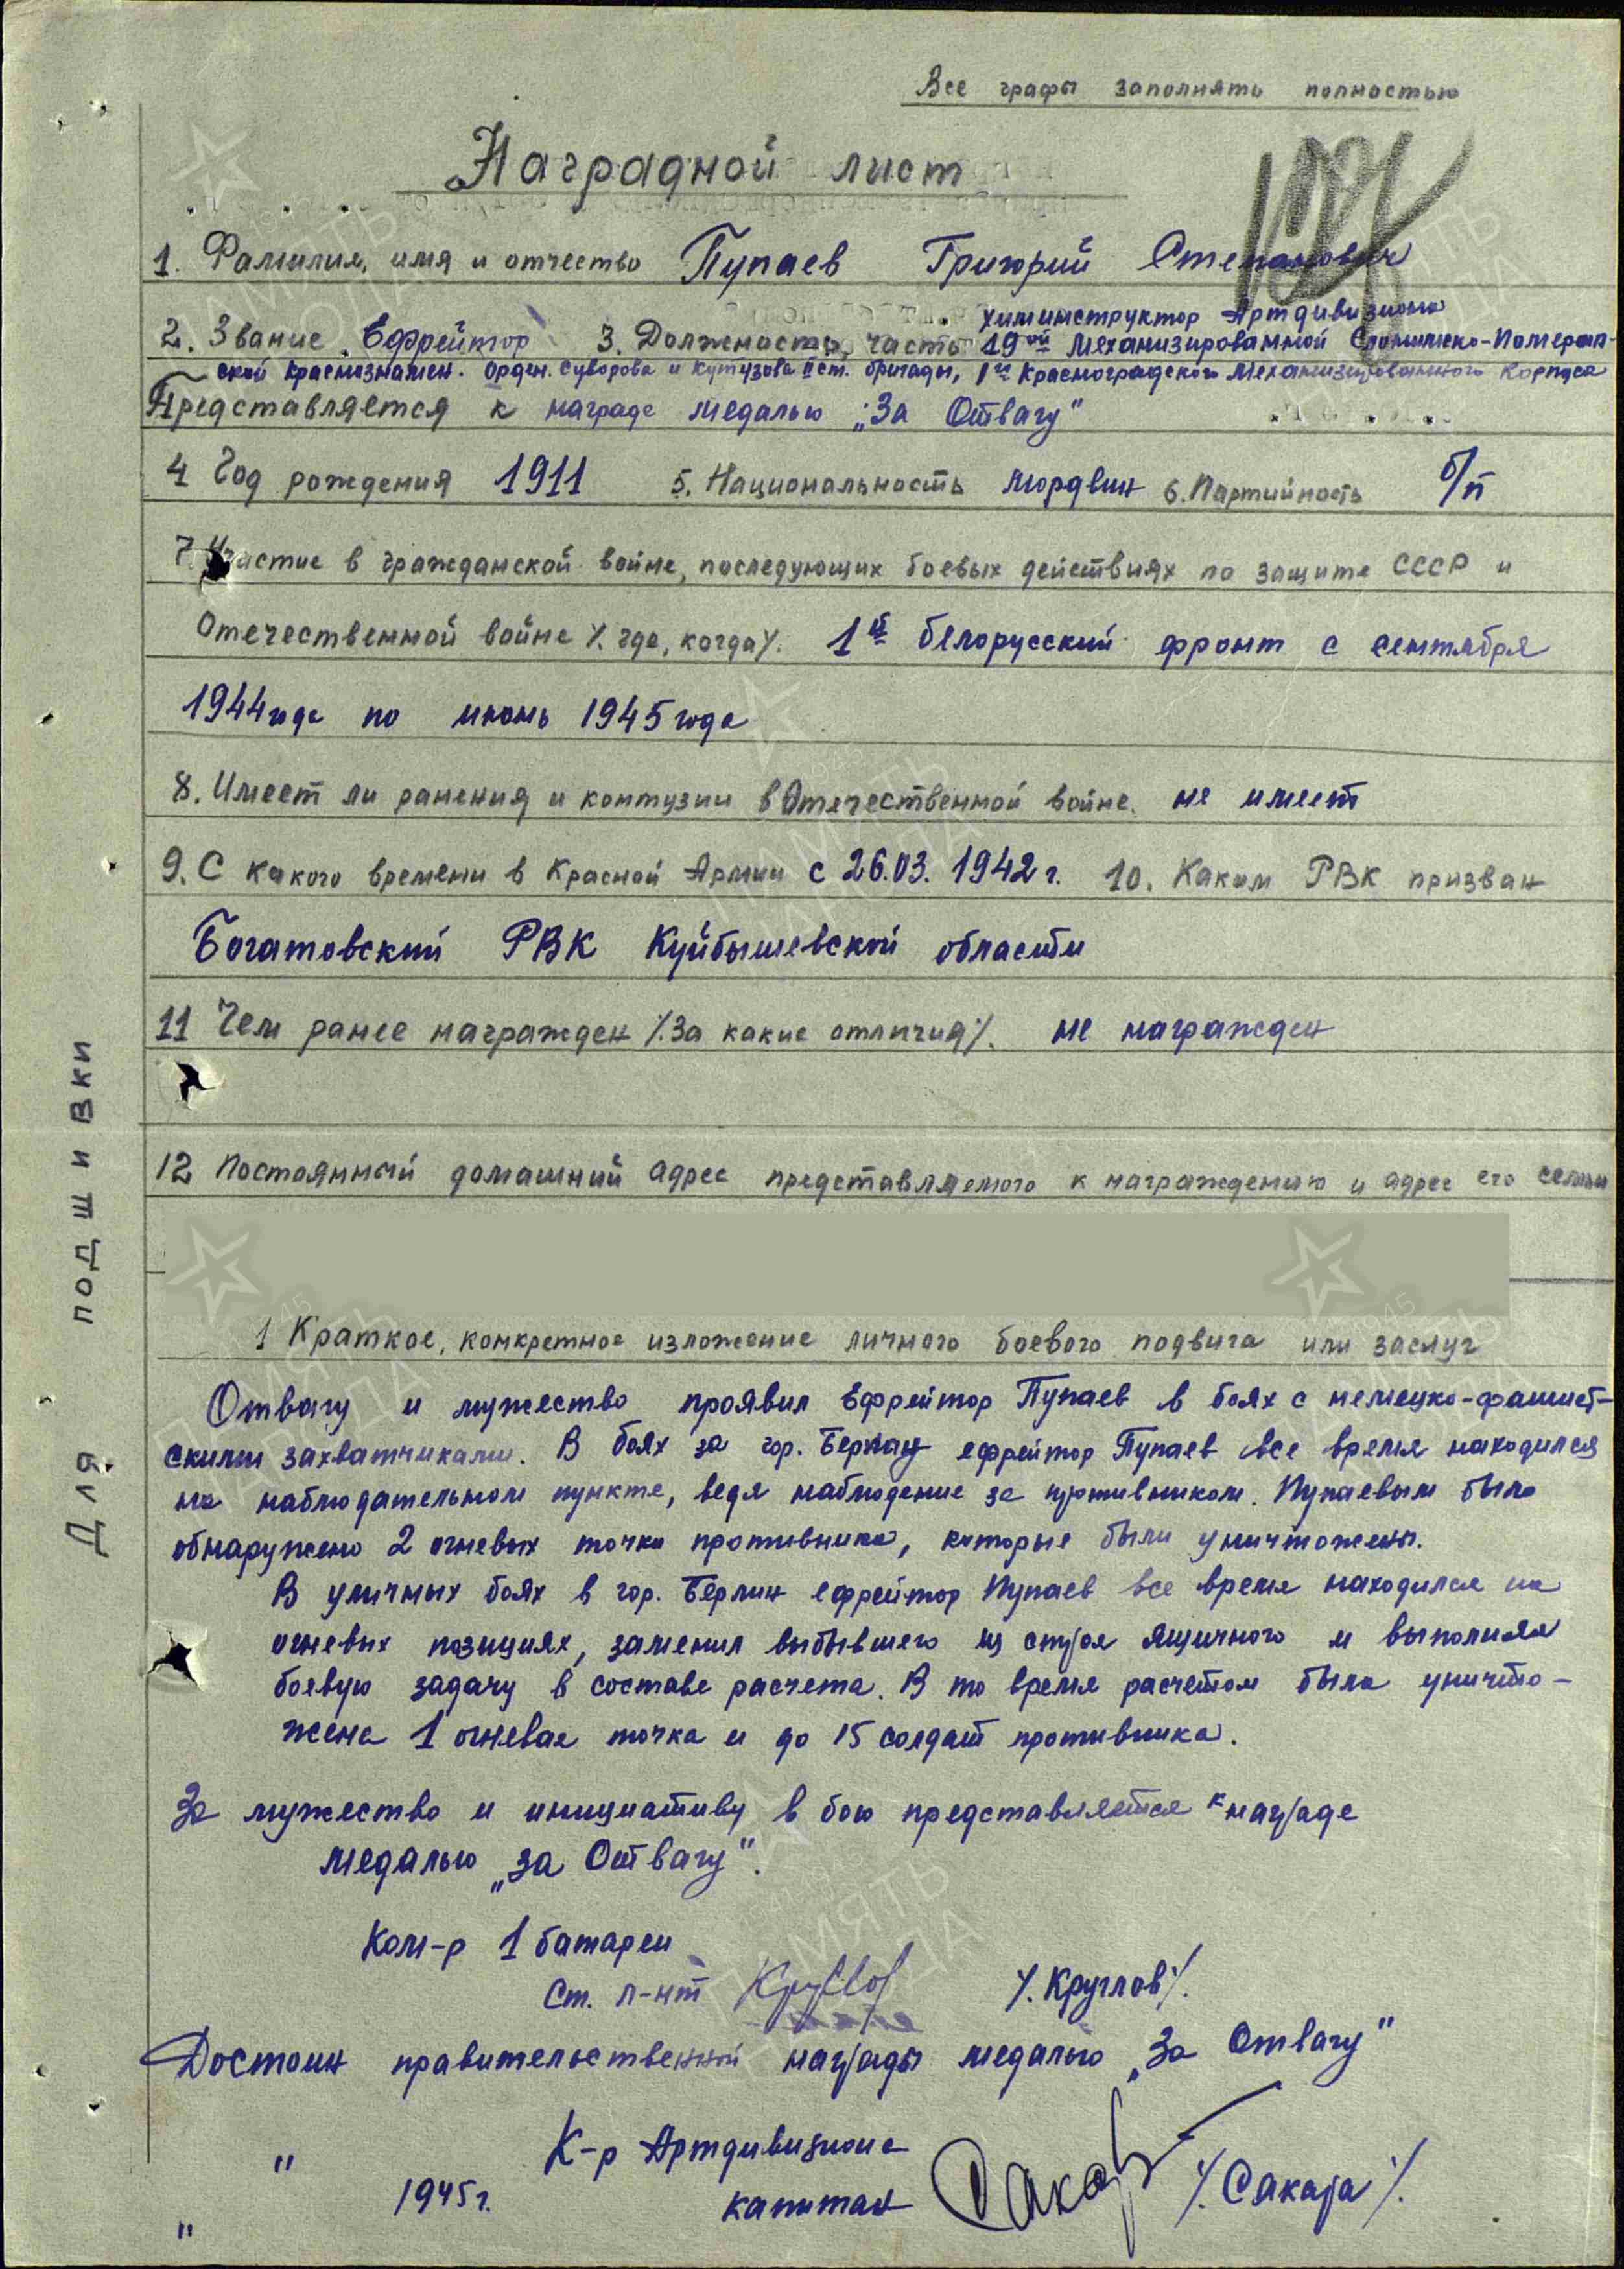 Все графы заполнять полностью
Наградной лист
1. Фамилия, имя и отчество Пупаев Григорий Степанович
химинструктор Артдивизиона
2. Звание Ефрейтор 3. Должность, часть 19ой Механизированной Слонимско-Померан-
ской Краснознамен. Орден. Суворова и Кутузова II ст. бригады, 1го Красноградского Механизированного Корпуса
Представляется к награде медалью „За Отвагу"
4 Год рождения 1911 5. Национальность мордвин 6. Партийность б/п
7. Участие в гражданской войне, последующих боевых действиях по защите СССР и
Отечественной войне /. где, когда/. 1й белорусский фронт с сентября
1944 года по июнь 1945 года
8. Имеет ли ранения и контузии в Отечественной войне. не имеет
9. С какого времени в Красной Армии с 26.03.1942 г. 10. Каким РВК призван
Богатовский РВК Куйбышевской области
11 Чем ранее награжден /. За какие отличия/. не награжден
12 Постоянный домашний адрес представляемого к награждению и адрес его семьи
1 Краткое, конкретное изложение личного боевого подвига или заслуг
Отвагу и мужество проявил Ефрейтор Пупаев в боях с немецко-фашист-
скими захватчиками. В боях за гор. Бернау ефрейтор Пупаев все время находился
на наблюдательном пункте, ведя наблюдение за противником. Пупаевым было
обнаружено 2 огневых точки противника, которые были уничтожены.
В уличных боях в гор. Берлин ефрейтор Пупаев все время находился на
огневых позициях, заменил выбывшего из строя ящичного и выполнял
боевую задачу в составе расчета. В то время расчетом была уничто-
жена 1 огневая точка и до 15 солдат противника.
За мужество и инициативу в бою представляется к награде
медалью „за Отвагу".
Ком-р 1 батареи
Ст. л-нт /. Круглов/.
Достоин правительственной награды медалью „За Отвагу"
К-р Артдивизиона
" 1945 г. капитан Сакара /. Сакара/.
"
Для подшивки